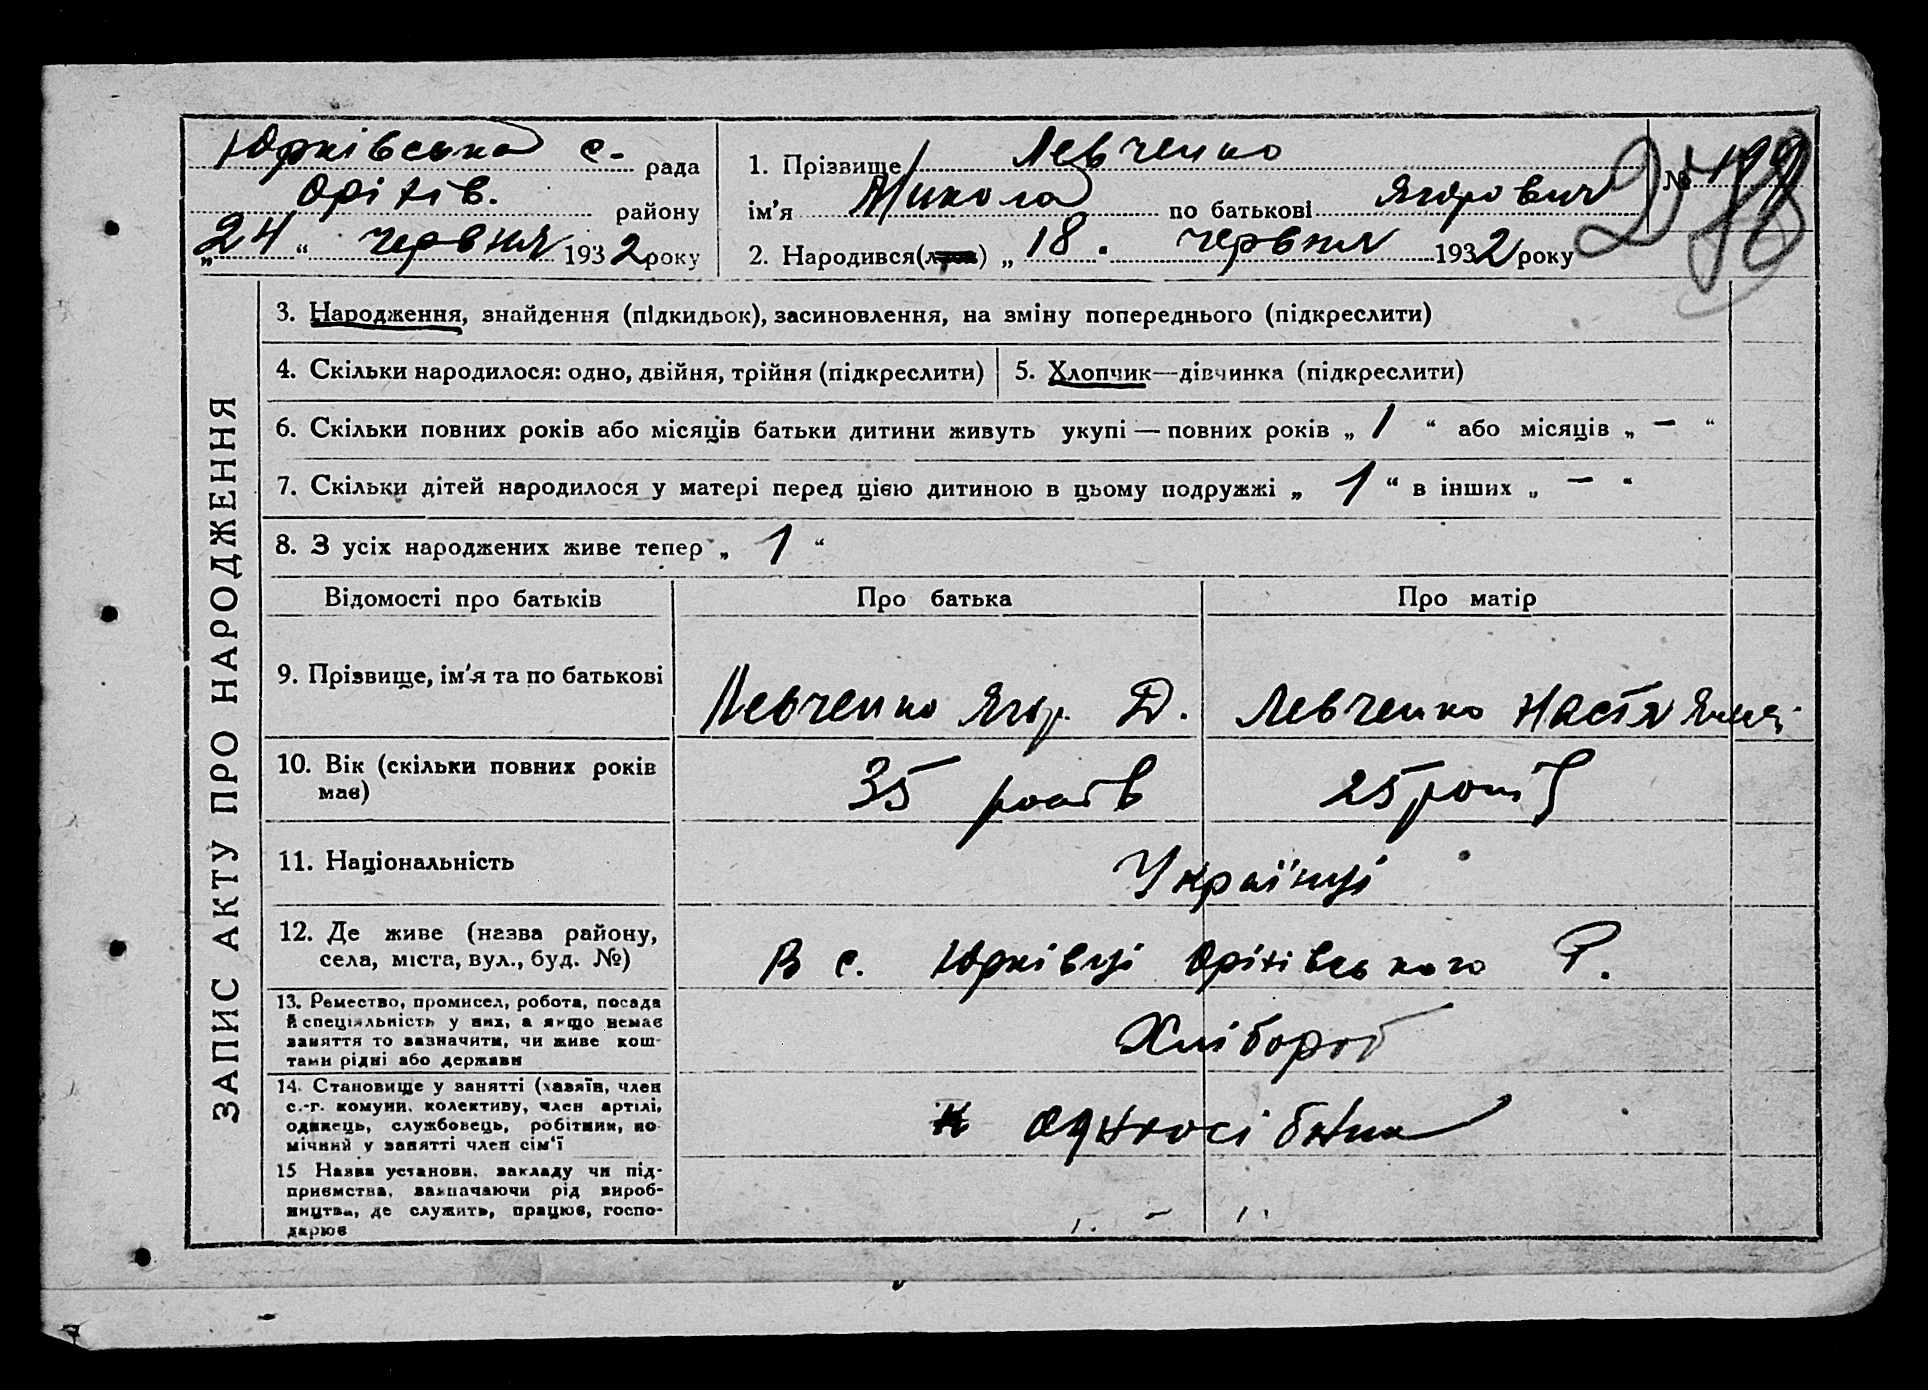 Юрківська с. рада
Оріхів. району
„24“ червня 1932 року
1. Прізвище Левченко
ім’я Микола по батькові Ягорович
2. Народився(лася) „18. червня 1932 року
№
ЗАПИС АКТУ ПРО НАРОДЖЕННЯ
3. Народження, знайдення (підкидьок), засиновлення, на зміну попереднього (підкреслити)
4. Скільки народилося: одно, двійня, трійня (підкреслити)
5. Хлопчик—дівчинка (підкреслити)
6. Скільки повних років або місяців батьки дитини живуть укупі — повних років „ 1 “ або місяців „ – “
7. Скільки дітей народилося у матері перед цією дитиною в цьому подружжі „ 1 “ в інших „ – “
8. З усіх народжених живе тепер „ 1 “
Відомості про батьків Про батька Про матір
9. Прізвище, ім’я та по батькові
Левченко Ягор. Д. Левченко Настя
10. Вік (скільки повних років
має)
35 років 25 років
11. Національність
Українці
12. Де живе (назва району,
села, міста, вул., буд. №)
В с. Юрківці Оріхівського Р.
13. Ремество, промисел, робота, посада
й спеціяльність у них, а якщо немає
заняття то зазначити, чи живе кош-
тами рідні або держави
Хлібороб
14. Становище у занятті (хазяїн, член
с.-г. комуни, колективу, член артілі,
одинець, службовець, робітник, по-
мічний у занятті член сім‘ї
односібник
15 Назва установи, закладу чи під-
приємства, зазначаючи рід вироб-
ництва, де служить, працює, госпо-
дарює